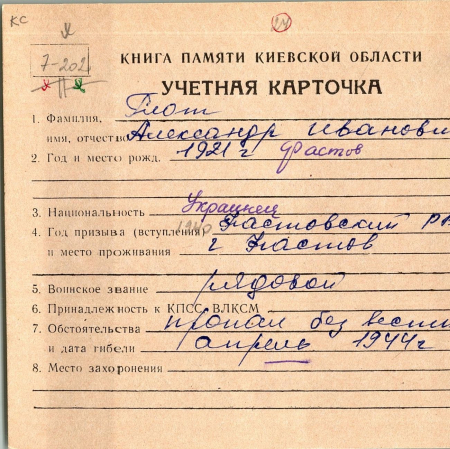 КС
7-202
КНИГА ПАМЯТИ КИЕВСКОЙ ОБЛАСТИ
УЧЕТНАЯ КАРТОЧКА
1. Фамилия, Плот
имя, отчество Александр Иванови
2. Год и место рожд. 1921 г Фастов
3. Национальность Украинец
4. Год призыва (вступления) 1940 Фастовский Р
и место проживания г Фастов
5. Воинское звание рядовой
6. Принадлежность к КПСС, ВЛКСМ
7. Обстоятельства пропал без вести
и дата гибели апрель 1944г
8. Место захоронения